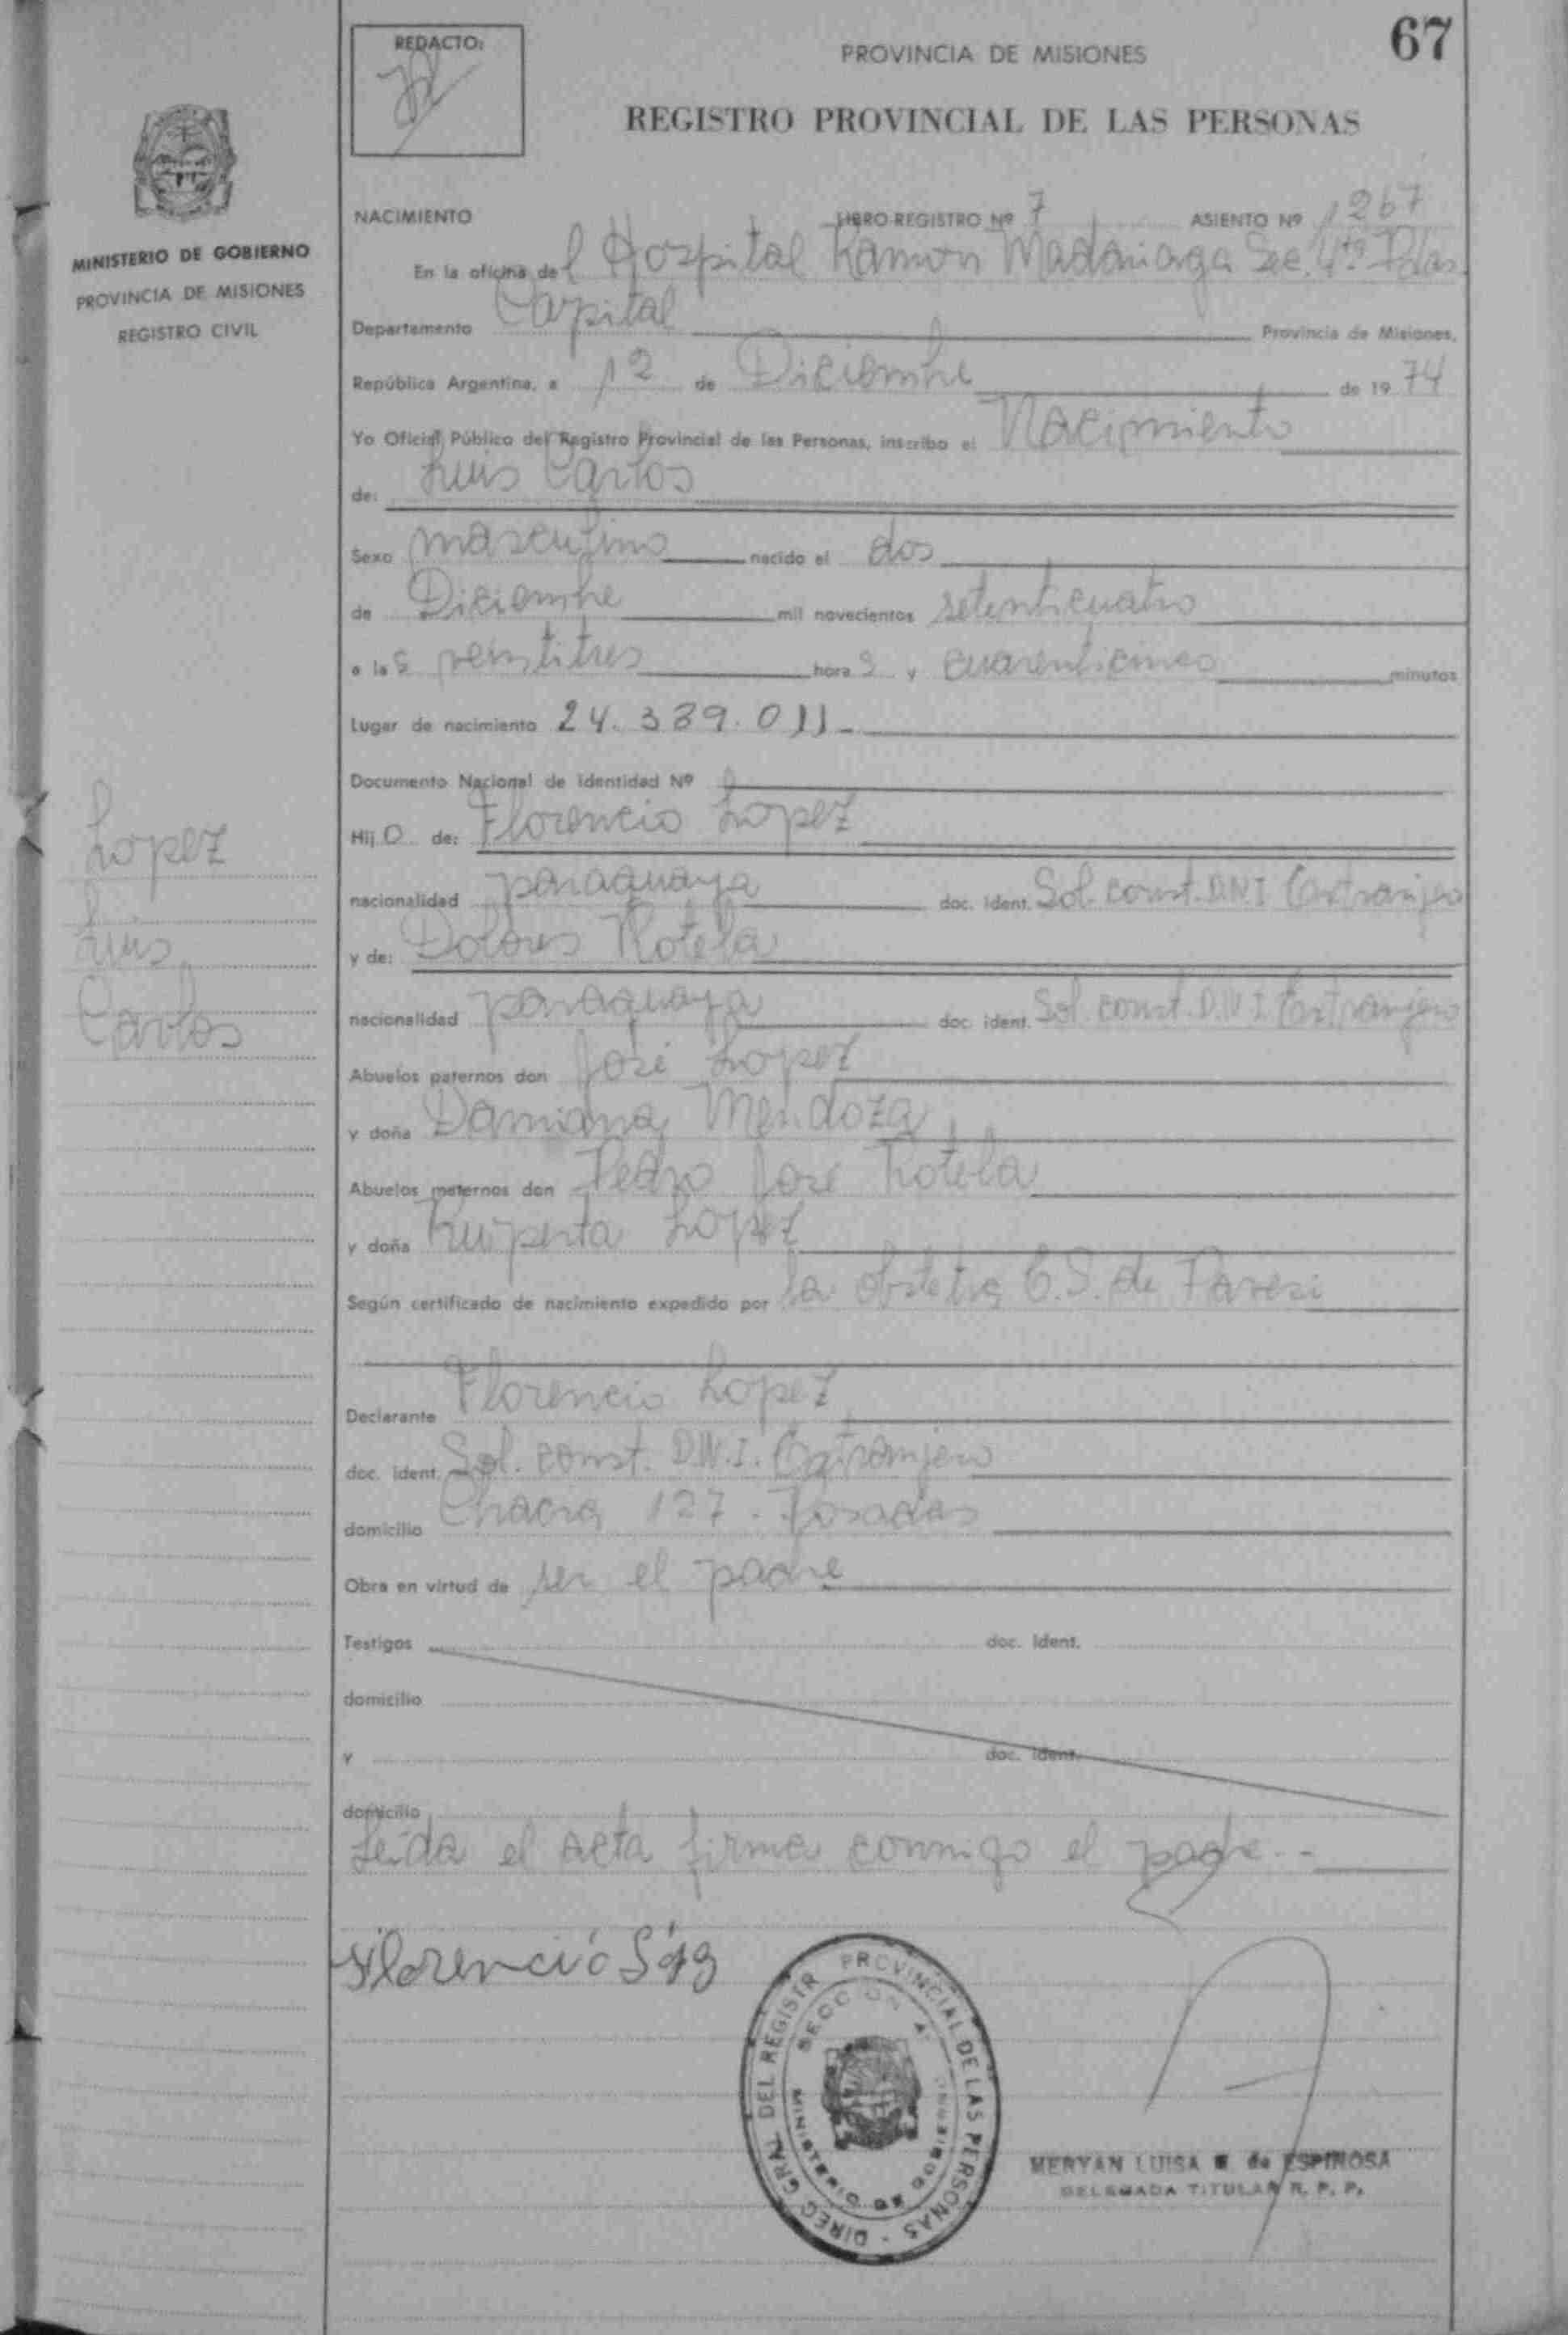 67
REDACTO:
PROVINCIA DE MISIONES
REGISTRO PROVINCIAL DE LAS PERSONAS
MINISTERIO DE GOBIERNO
PROVINCIA DE MISIONES
REGISTRO CIVIL
NACIMIENTO LIBRO-REGISTRO Nº 7 ASIENTO Nº 1267
En la oficina del Hospital Ramon Madariaga Sec. 4ta Pdas
Departamento Capital Provincia de Misiones,
República Argentina, a 12 de Diciembre de 1974
Yo Oficial Público del Registro Provincial de las Personas, inscribo el Nacimiento
de: Luis Carlos
Sexo masculino nacido el dos
de Diciembre mil novecientos setenticuatro
a las veintitres horas y cuarenticinco minutos
Lugar de nacimiento 24.339.011-
Documento Nacional de Identidad Nº
Hijo de: Florencio Lopez
nacionalidad paraguaya doc. ident. Sol. const. D.N.I Extranjero
y de: Dolores Rotela
nacionalidad paraguaya doc. ident. Sol. const. D.N.I. Extranjero
Abuelos paternos don José Lopez
y doña Damiana Mendoza
Abuelos maternos don Pedro José Rotela
y doña Ruiperta Lopez
Según certificado de nacimiento expedido por la obstetra C.S. de Paresi
Declarante Florencio Lopez
doc. ident. Sol. const. D.N.I. Extranjero
domicilio Chacra 127 - Posadas
Obra en virtud de ser el padre
Testigos doc. ident.
domicilio
y doc. ident.
domicilio
Leida el acta firma conmigo el padre.-
Lopez
Luis
Carlos
Florencio
DIREC. GRAL DEL REGISTR PROVINCIAL DE LAS PERSONAS -
SECCION 4ª
MINISTERIO DE GOBIERNO
MERYAN LUISA de ESPINOSA
DELEGADA TITULAR R. P. P.